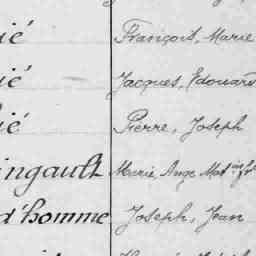 ié François, Marie
ié Jacques, Edouard
ié Pierre, Joseph
ingault Marie Ange
d'homme Joseph, Jean